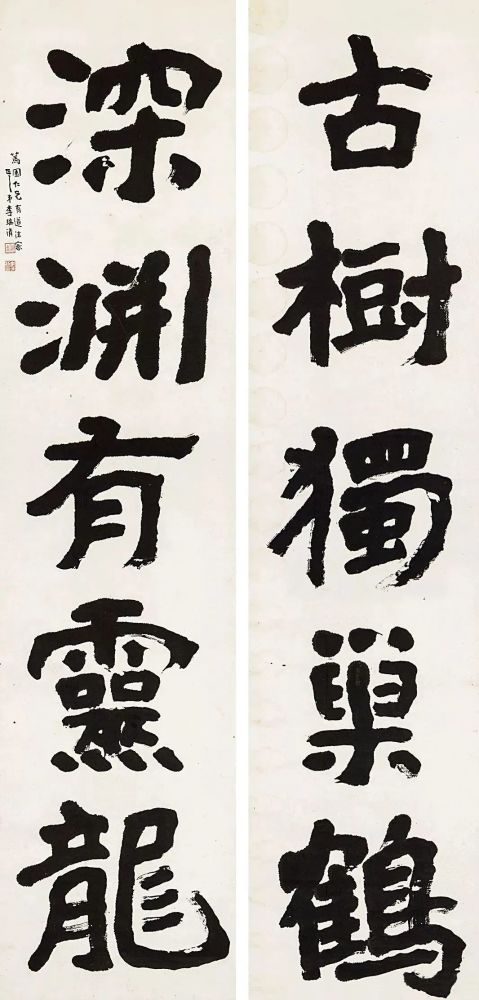 古樹獨巢鶴
深淵有靈龍
篤周仁兄有道法家
弟李瑞清